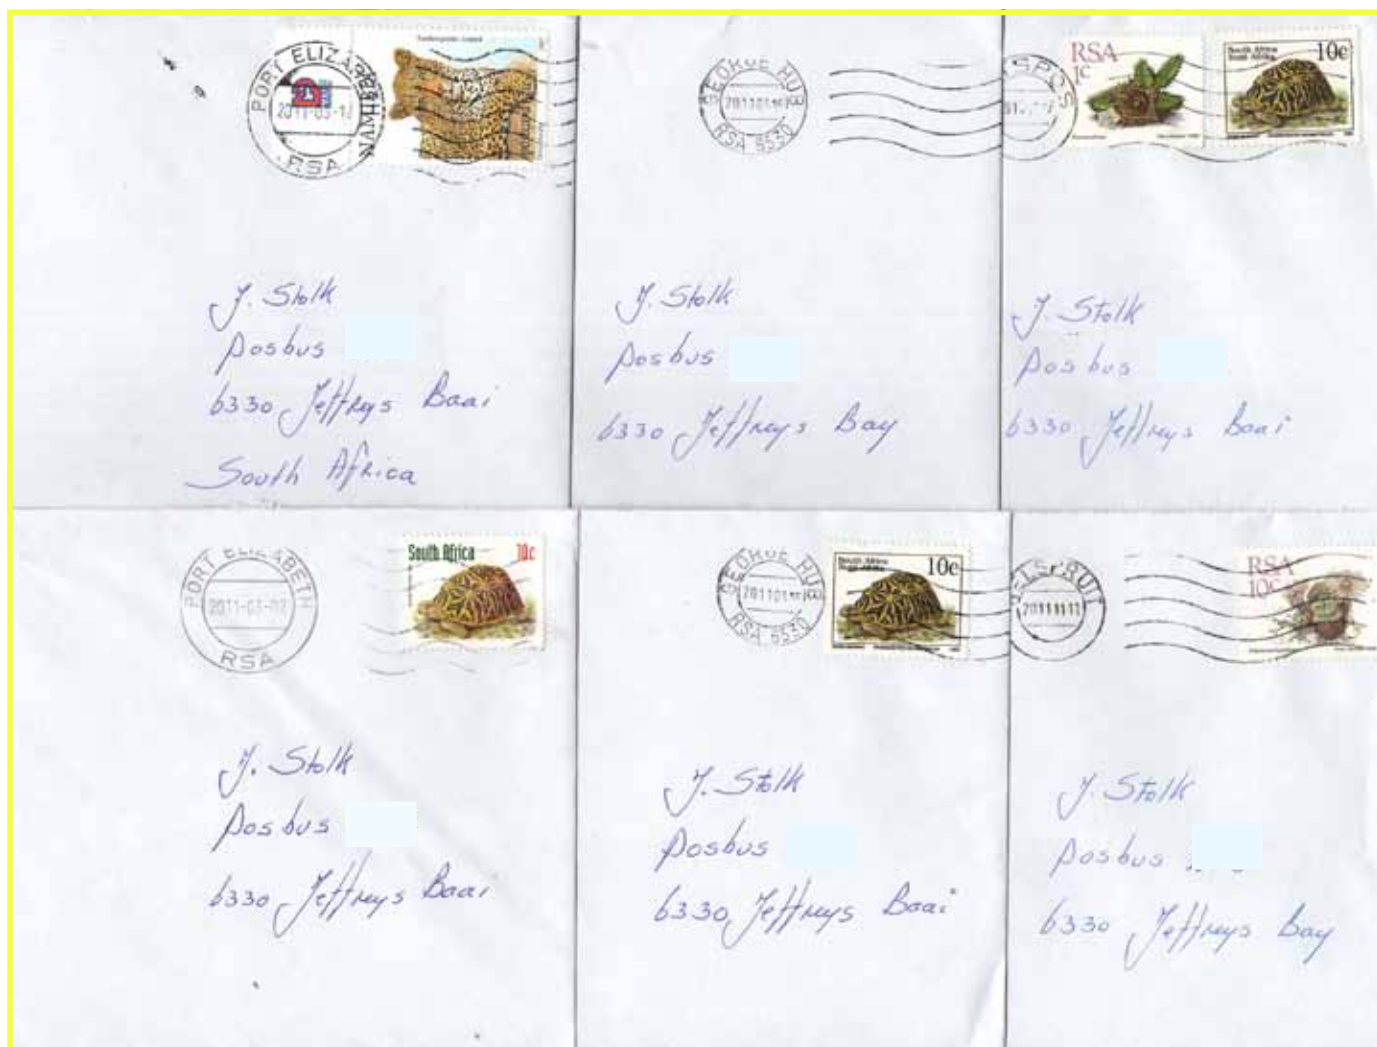 PORT ELIZABETH
2011-03-1
RSA
J. Stolk
Posbus
6330 Jeffreys Baai
South Africa
GEORGE HUB
RSA 6530
J. Stolk
Posbus
6330 Jeffreys Bay
RSA
1c
South Africa
10c
J. Stolk
Posbus
6330 Jeffreys Baai
PORT ELIZABETH
2011-03-02
RSA
South Africa 10c
J. Stolk
Posbus
6330 Jeffreys Baai
GEORGE HUB
RSA 6530
South Africa
10c
J. Stolk
Posbus
6330 Jeffreys Baai
ELSPRUIT
RSA
10c
J. Stolk
Posbus
6330 Jeffreys Bay